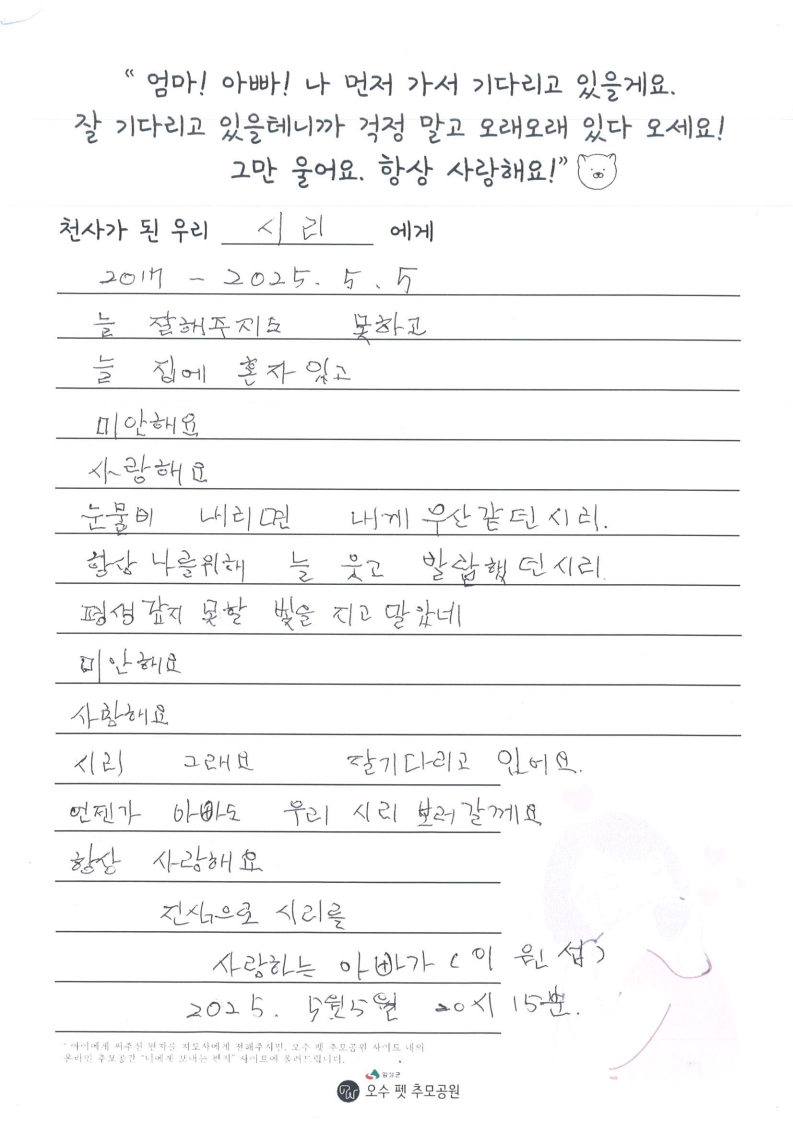 “ 엄마! 아빠! 나 먼저 가서 기다리고 있을게요.
잘 기다리고 있을테니까 걱정 말고 오래오래 있다 오세요!
그만 울어요. 항상 사랑해요!”
천사가 된 우리 시리 에게
2017 - 2025. 5. 5
늘 잘해주지도 못하고
늘 집에 혼자있고
미안해요
사랑해요
눈물비 내리면 내게 우산같던시리.
항상 나를위해 늘 웃고 발랄했던시리.
평생 갚지 못할 빛을 지고 말았네
미안해요
사랑해요
시리 그래요 잘기다리고 있어요.
언젠가 아빠도 우리 시리 보러갈께요
항상 사랑해요
진심으로 시리를
사랑하는 아빠가 (이 원 섭)
2025. 5월5일 20시 15분.
* 아이에게 써주신 편지를 지도사에게 전해주시면, 오수 펫 추모공원 사이트 내의
온라인 추모공간 "너에게 보내는 편지" 사이트에 올려드립니다.
임실군
오수 펫 추모공원